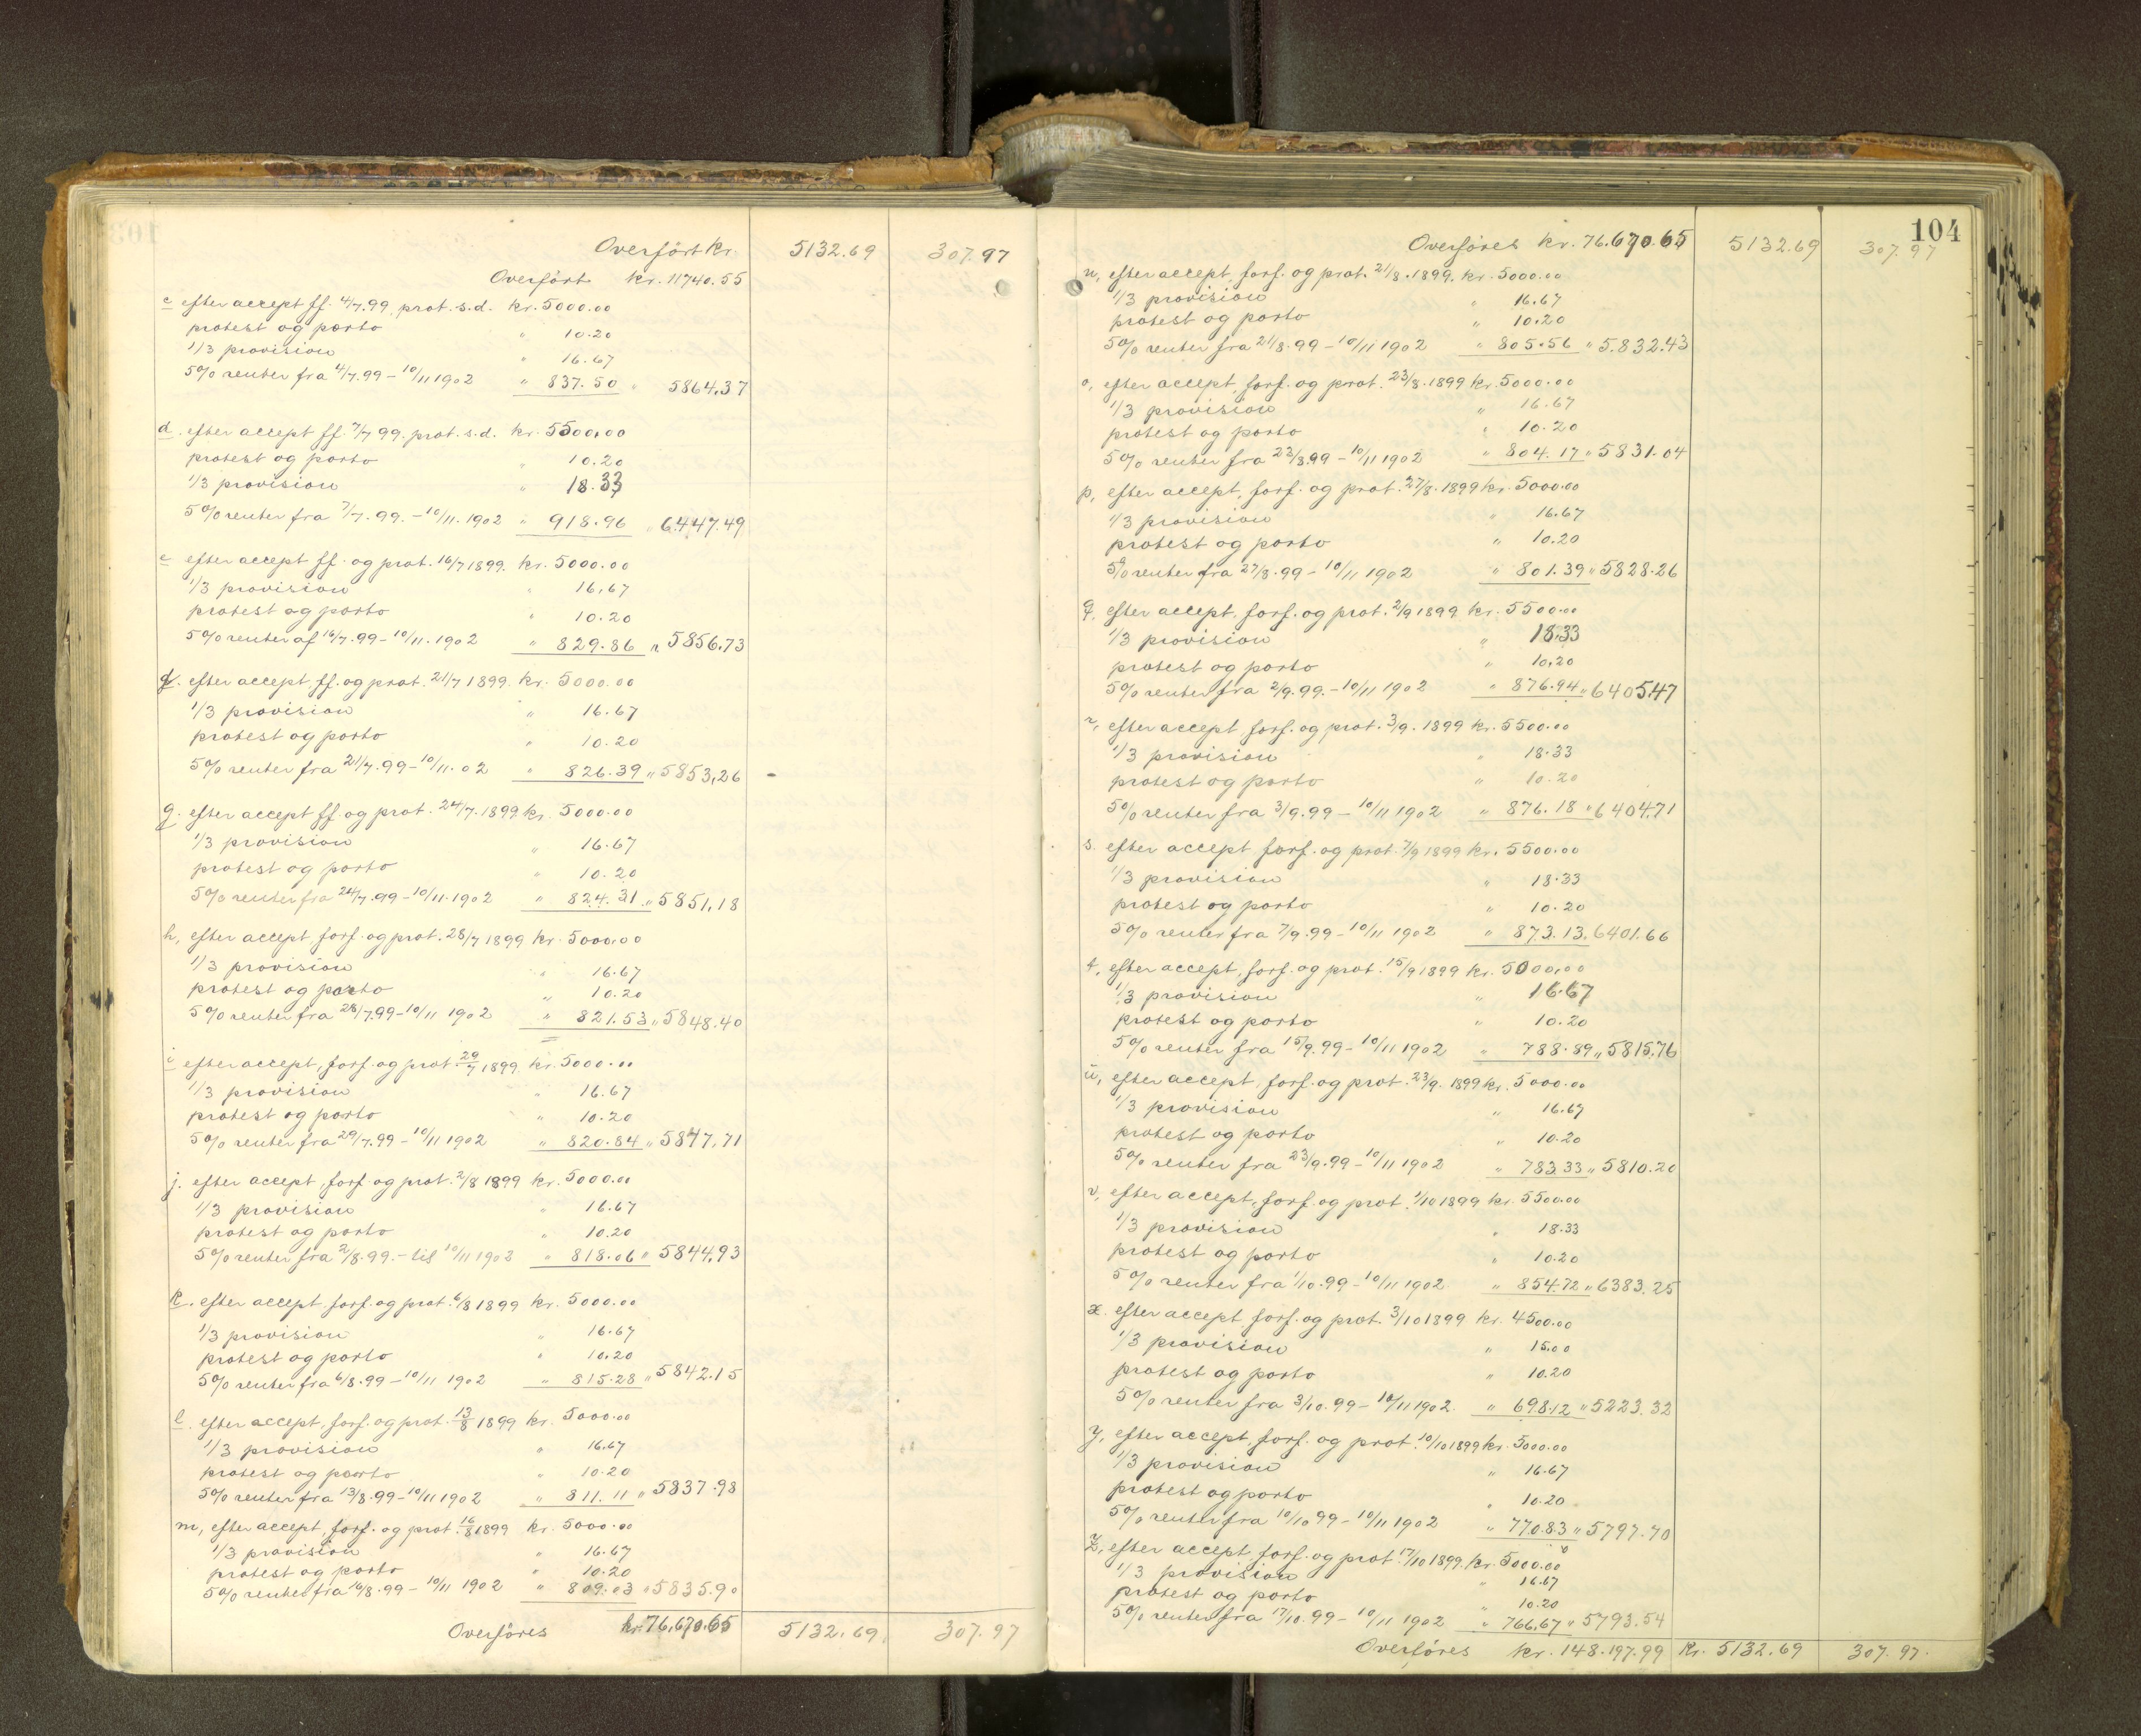 Overført kr. 5132.69 307.97
Overført kr. 11740.55
c efter accept ff. 4/7.99 prot. s.d. kr. 5000.00
protest og porto " 10.20
1/3 provision " 16.67
5% renter fra 4/7.99 - 10/11 1902 " 837.50 " 5864,37
d. efter accept ff. 7/7 99. prot. s.d. kr. 5500,00
protest og porto " 10.20
1/3 provision " 18.33
5% renter fra 7/7.99. - 10/11.1902 " 918.96 " 6.447.49
e efter accept ff. og prot. 16/7 1899. kr. 5000.00
1/3 provision " 16,67
protest og porto " 10.20
5% renter af 16/7.99 - 10/11.1902 " 829.86 " 5856.73
f. efter accept, ff. og prot. 21/7 1899. kr. 5000.00
1/3 provision " 16.67
protest og porto " 10.20
5% renter fra 21/7.99 - 10/11.02 " 826.39 " 5853,26
g. efter accept ff. og prot. 24/7.1899. kr. 5000.00
1/3 provision " 16.67
protest og porto " 10.20
5% renter fra 24/7.99 - 10/11.1902 " 824.31 " 5851,18
h, efter accept forf. og prot. 28/7 1899 kr. 5000,00
1/3 provision " 16.67
protest og porto " 10.20
5% renter fra 28/7.99 - 10/11 1902 " 821.53 " 5848.40
i efter accept, forf. og prot. 29/7 1899. kr. 5000.00
1/3 provision " 16.67
protest og porto " 10.20
5% renter fra 29/7.99 - 10/11 1902 " 820.84 " 5847,71
j. efter accept, forf. og prot. 2/8 1899 kr. 5000.00
1/3 provision " 16.67
protest og porto " 10.20
5% renter fra 2/8.99. - til 10/11 1902 " 818.06 " 5844,93
k. efter accept, forf. og prot. 6/8 1899 kr. 5000.00
1/3 provision " 16.67
protest og porto " 10.20
5% renter fra 6/8.99 - 10/11 1902 " 815.28 " 5842.15
l. efter accept, forf. og prot. 13/8 1899 kr. 5000.00
1/3 provision " 16.67
protest og porto " 10.20
5% renter fra 13/8.99 - 10/11 1902 " 811.11 " 5837.98
m, efter accept, forf. og prot. 16/8 1899 kr. 5000.00
1/3 provision " 16.67
protest og porto " 10.20
5% renter fra 16/8.99 - 10/11 1902 " 809.03 " 5835.90
Overføres kr. 76,670.65 5132.69 307.97
104
Overføres kr. 76.670.65 5132.69 307.97
n, efter accept, forf. og prot. 21/8.1899. kr. 5000.00
1/3 provision " 16.67
protest og porto " 10.20
5% renter fra 21/8.99 - 10/11 1902 " 805.56 " 5.832.43
o, efter accept, forf. og prot. 23/8.1899 kr. 5000.00
1/3 provision " 16.67
protest og porto " 10.20
5% renter fra 23/8.99 - 10/11 1902 " 804.17 " 5831.04
p, efter accept, forf. og prot. 27/8.1899 kr. 5000.00
1/3 provision " 16.67
protest og porto " 10.20
5% renter fra 27/8.99 - 10/11 1902 " 801.39 " 5828.26
q, efter accept, forf. og prot. 2/9 1899 kr. 5500.00
1/3 provision " 18.33
protest og porto " 10,20
5% renter fra 2/9.99. - 10/11 1902 " 876.94 " 6405.47
r, efter accept, forf. og prot. 3/9.1899 kr. 5500.00
1/3 provision " 18.33
protest og porto " 10.20
5% renter fra 3/9.99 - 10/11 1902 " 876.18 " 6404.71
s. efter accept, forf. og prot. 7/9 1899 kr. 5500.00
1/3 provision " 18.33
protest og porto " 10.20
5% renter fra 7/9.99 - 10/11 1902 " 873.13, 6401.66
t, efter accept, forf. og prot. 15/9 1899 kr. 5000,00
1/3 provision " 16.67
protest og porto " 10.20
5% renter fra 15/9.99 - 10/11 1902 " 788.89 " 5815,76
u, efter accept, forf. og prot. 23/9. 1899 kr. 5000.00
1/3 provision " 16.67
protest og porto " 10.20
5% renter fra 23/9.99 - 10/11 1902 " 783.33 " 5810.20
v, efter accept, forf. og prot. 1/10 1899 kr. 5500.00
1/3 provision " 18.33
protest og porto " 10.20
5% renter fra 1/10.99 - 10/11 1902 " 854.72 " 6383.25
x. efter accept, forf. og prot. 3/10 1899 kr. 4500.00
1/3 provision " 15.00
protest og porto " 10.20
5% renter fra 3/10.99 - 10/11 1902. " 698.12 " 5223.32
y, efter accept, forf. og prot. 10/10 1899 kr. 5000.00
1/3 provision " 16.67
protest og porto " 10.20
5% renter fra 10/10 99 - 10/11 1902 " 770.83 " 5797.70
z, efter accept, forf. og prot. 17/10 1899. kr. 5000.00
1/3 provision " 16.67
protest og porto " 10.20
5% renter fra 17/10.99 - 10/11 1902 " 766,67 " 5793.54
Overføres kr. 148.197.99 kr. 5132.69 307.97.